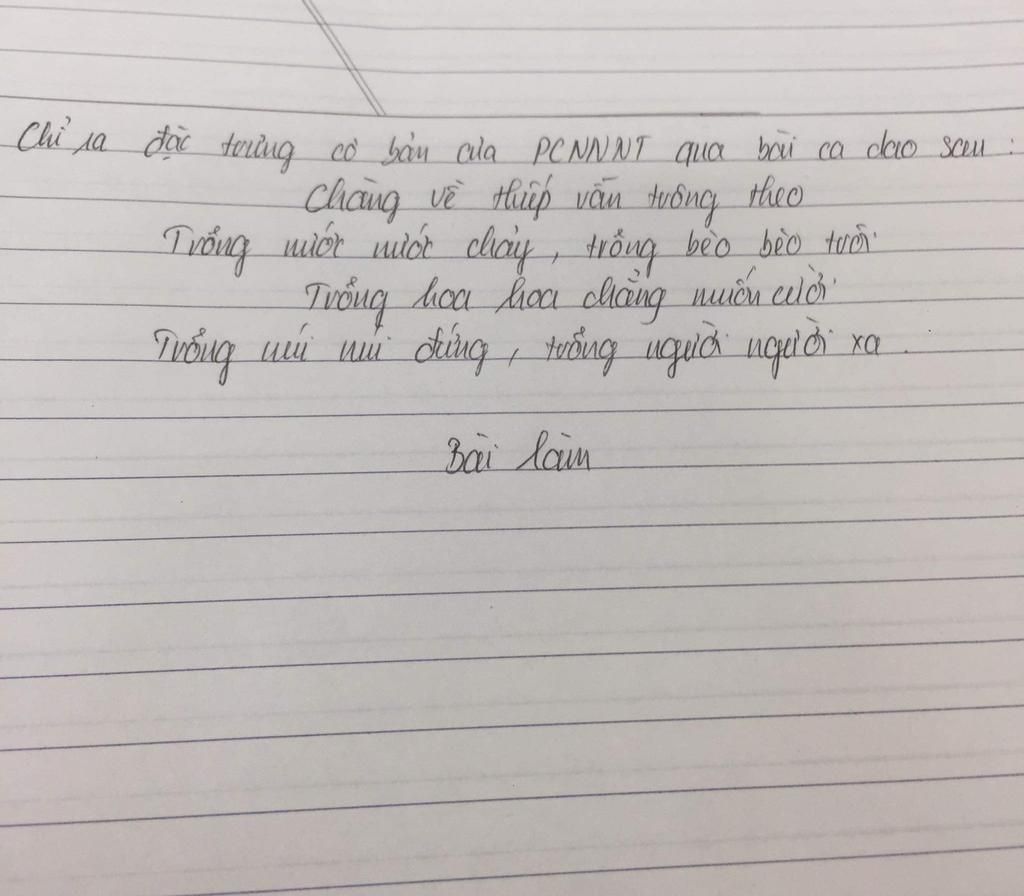 Chỉ ra đặc trưng cơ bản của PCNNNT qua bài ca dao sau :
Chàng về thiếp vẫn trông theo
Trông nước nước chảy, trông bèo bèo trôi
Trông hoa hoa chẳng muốn cười
Trông núi núi đứng, trông người người xa.
Bài làm